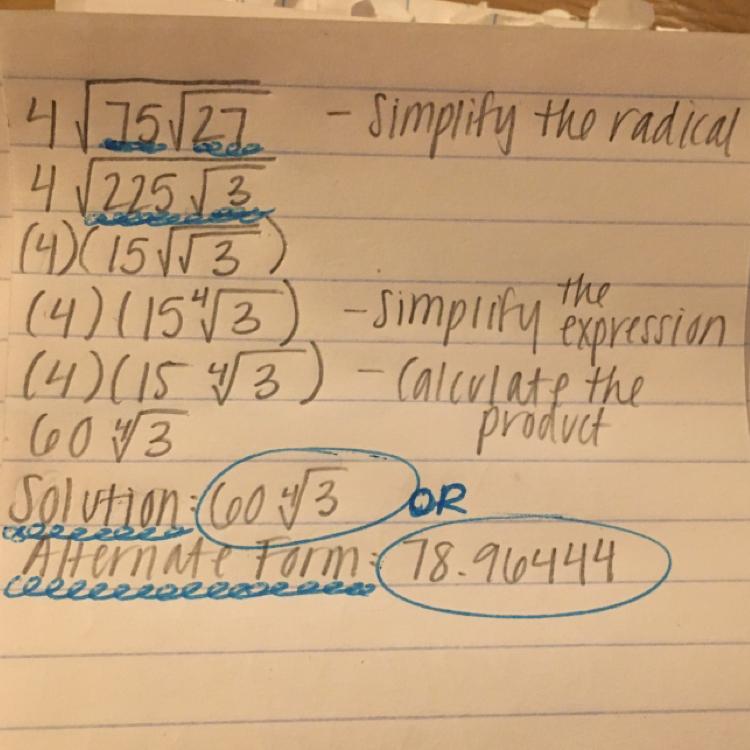 4√75√27 - Simplify the radical
4√225√3
(4)(15√√3)
(4)(15∜3) - Simplify the expression
(4)(15 ∜3) - Calculate the product
60 ∜3
Solution: 60 ∜3 OR
Alternate Form: 78.96444